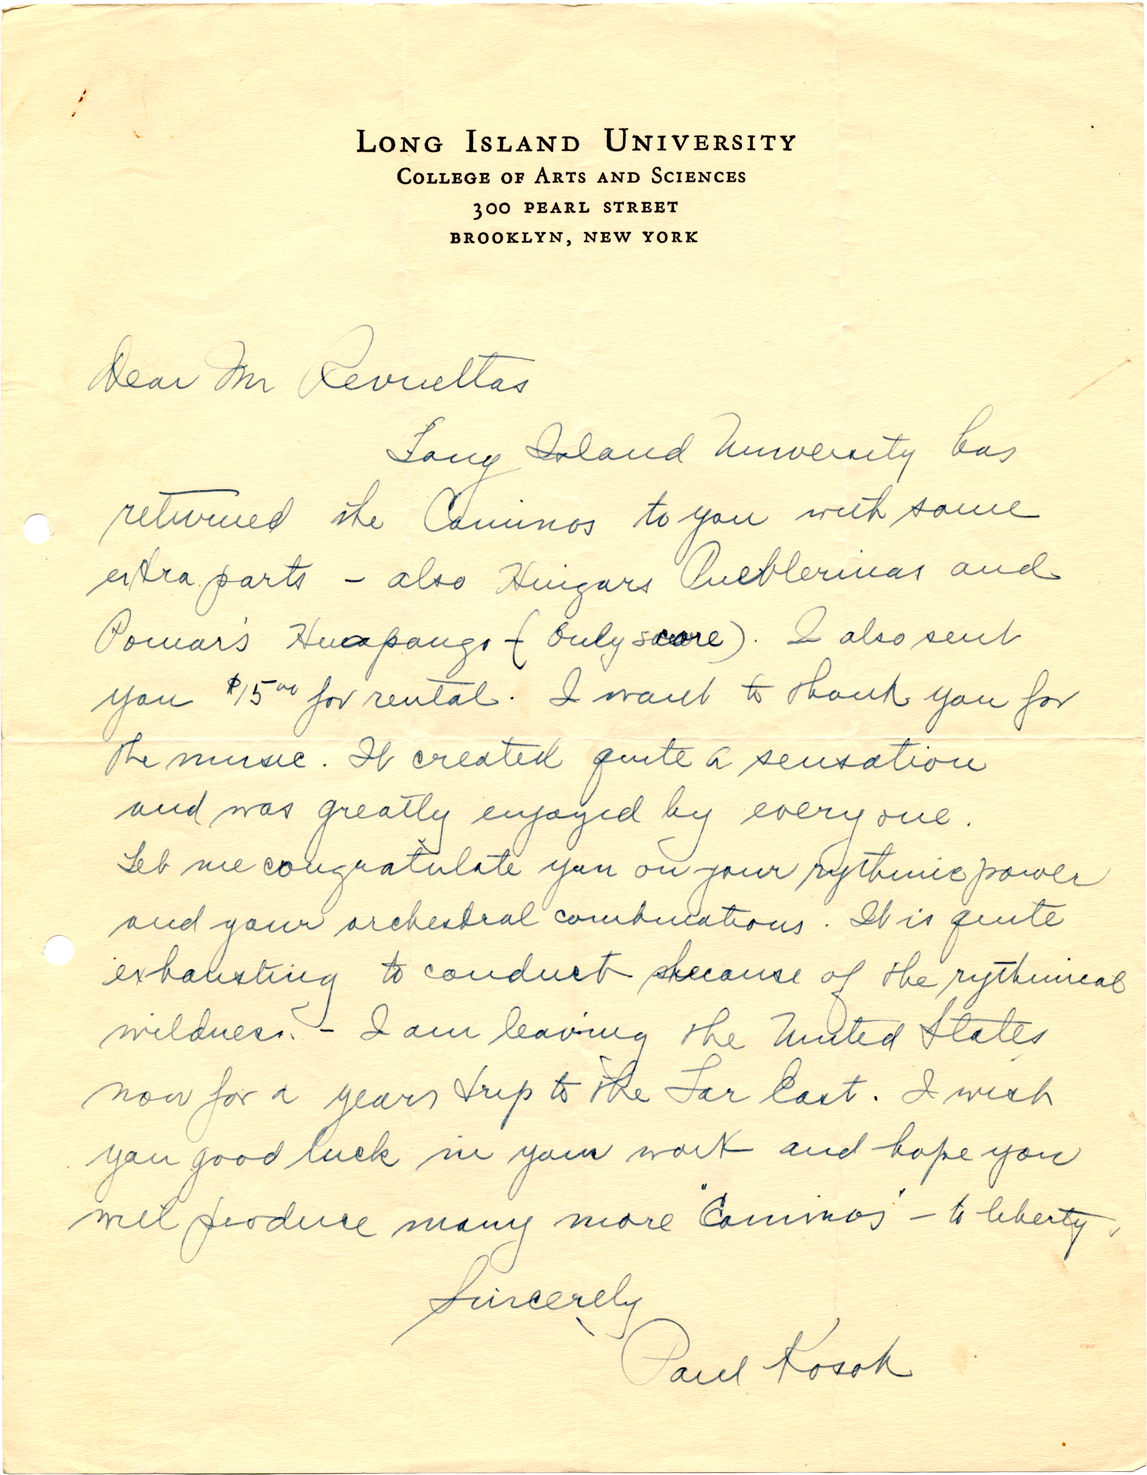 LONG ISLAND UNIVERSITY
COLLEGE OF ARTS AND SCIENCES
300 PEARL STREET
BROOKLYN, NEW YORK
Dear Mr Revueltas
Long Island University has
returned the Caminos to you with some
extra parts - also Huizars Pueblerinas and
Pomar's Huapango (only score). I also sent
you $15.00 for rental. I want to thank you for
the music. It created quite a sensation
and was greatly enjoyed by everyone.
Let me congratulate you on your rythmic power
and your orchestral combinations. It is quite
exhausting to conduct because of the rythmical
wildness. - I am leaving the United States
now for a years trip to the Far East. I wish
you good luck in your work and hope you
will produce many more "Caminos" - to liberty.
Sincerely
Paul Kosok